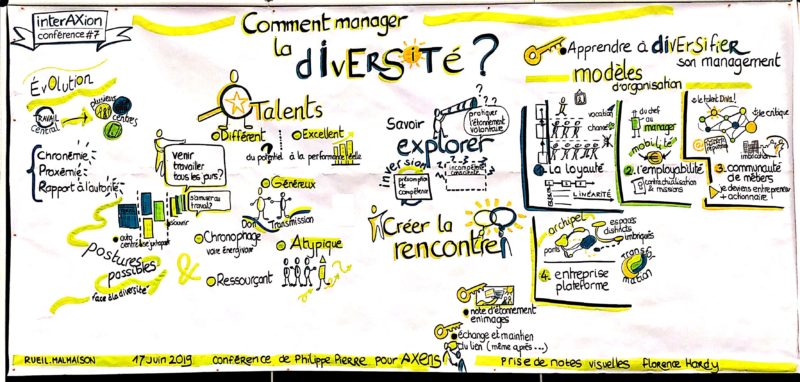 interAXion
conférence #7
Comment manager
la
diVERSiTé ?
ÉvOlution
TRAVAIL
central
plusieurs
centres
Chronémie
Proxémie
Rapport à l'autorité
venir
travailler
tous les jours?
s'amuser au
travail?
savoir
postures
possibles
face à la diversité
&
Talents
Différent
Excellent
du potentiel à la performance réelle
Généreux
Don
Transmission
Chronophage
voire énergivore
Atypique
Ressourçant
Savoir
explorer
pratiquer
l'étonnement
volontaire
inversion
présomption
de
compétence
incompétence
consciente
Créer la
rencontre
note d'étonnement
en images
échange et maintien
du lien (même après...)
Apprendre à diVERSiFIER
son management
modèles
d'organisation
vocation
1. La loyauté
LINÉARITÉ
du chef
au
manager
mobilité
2. l'employabilité
contractualisation
& missions
le talent Divis!
site critique
3. communauté
de métiers
je deviens entrepreneur
+ actionnaire!
archipel
ponts
espaces
distincts
imbriqués
Transfor
mation
4. entreprise
plateforme
RUEIL.MALMAISON
17 Juin 2019
conférence de Philippe Pierre pour AXENS
Prise de notes visuelles
Florence Hardy